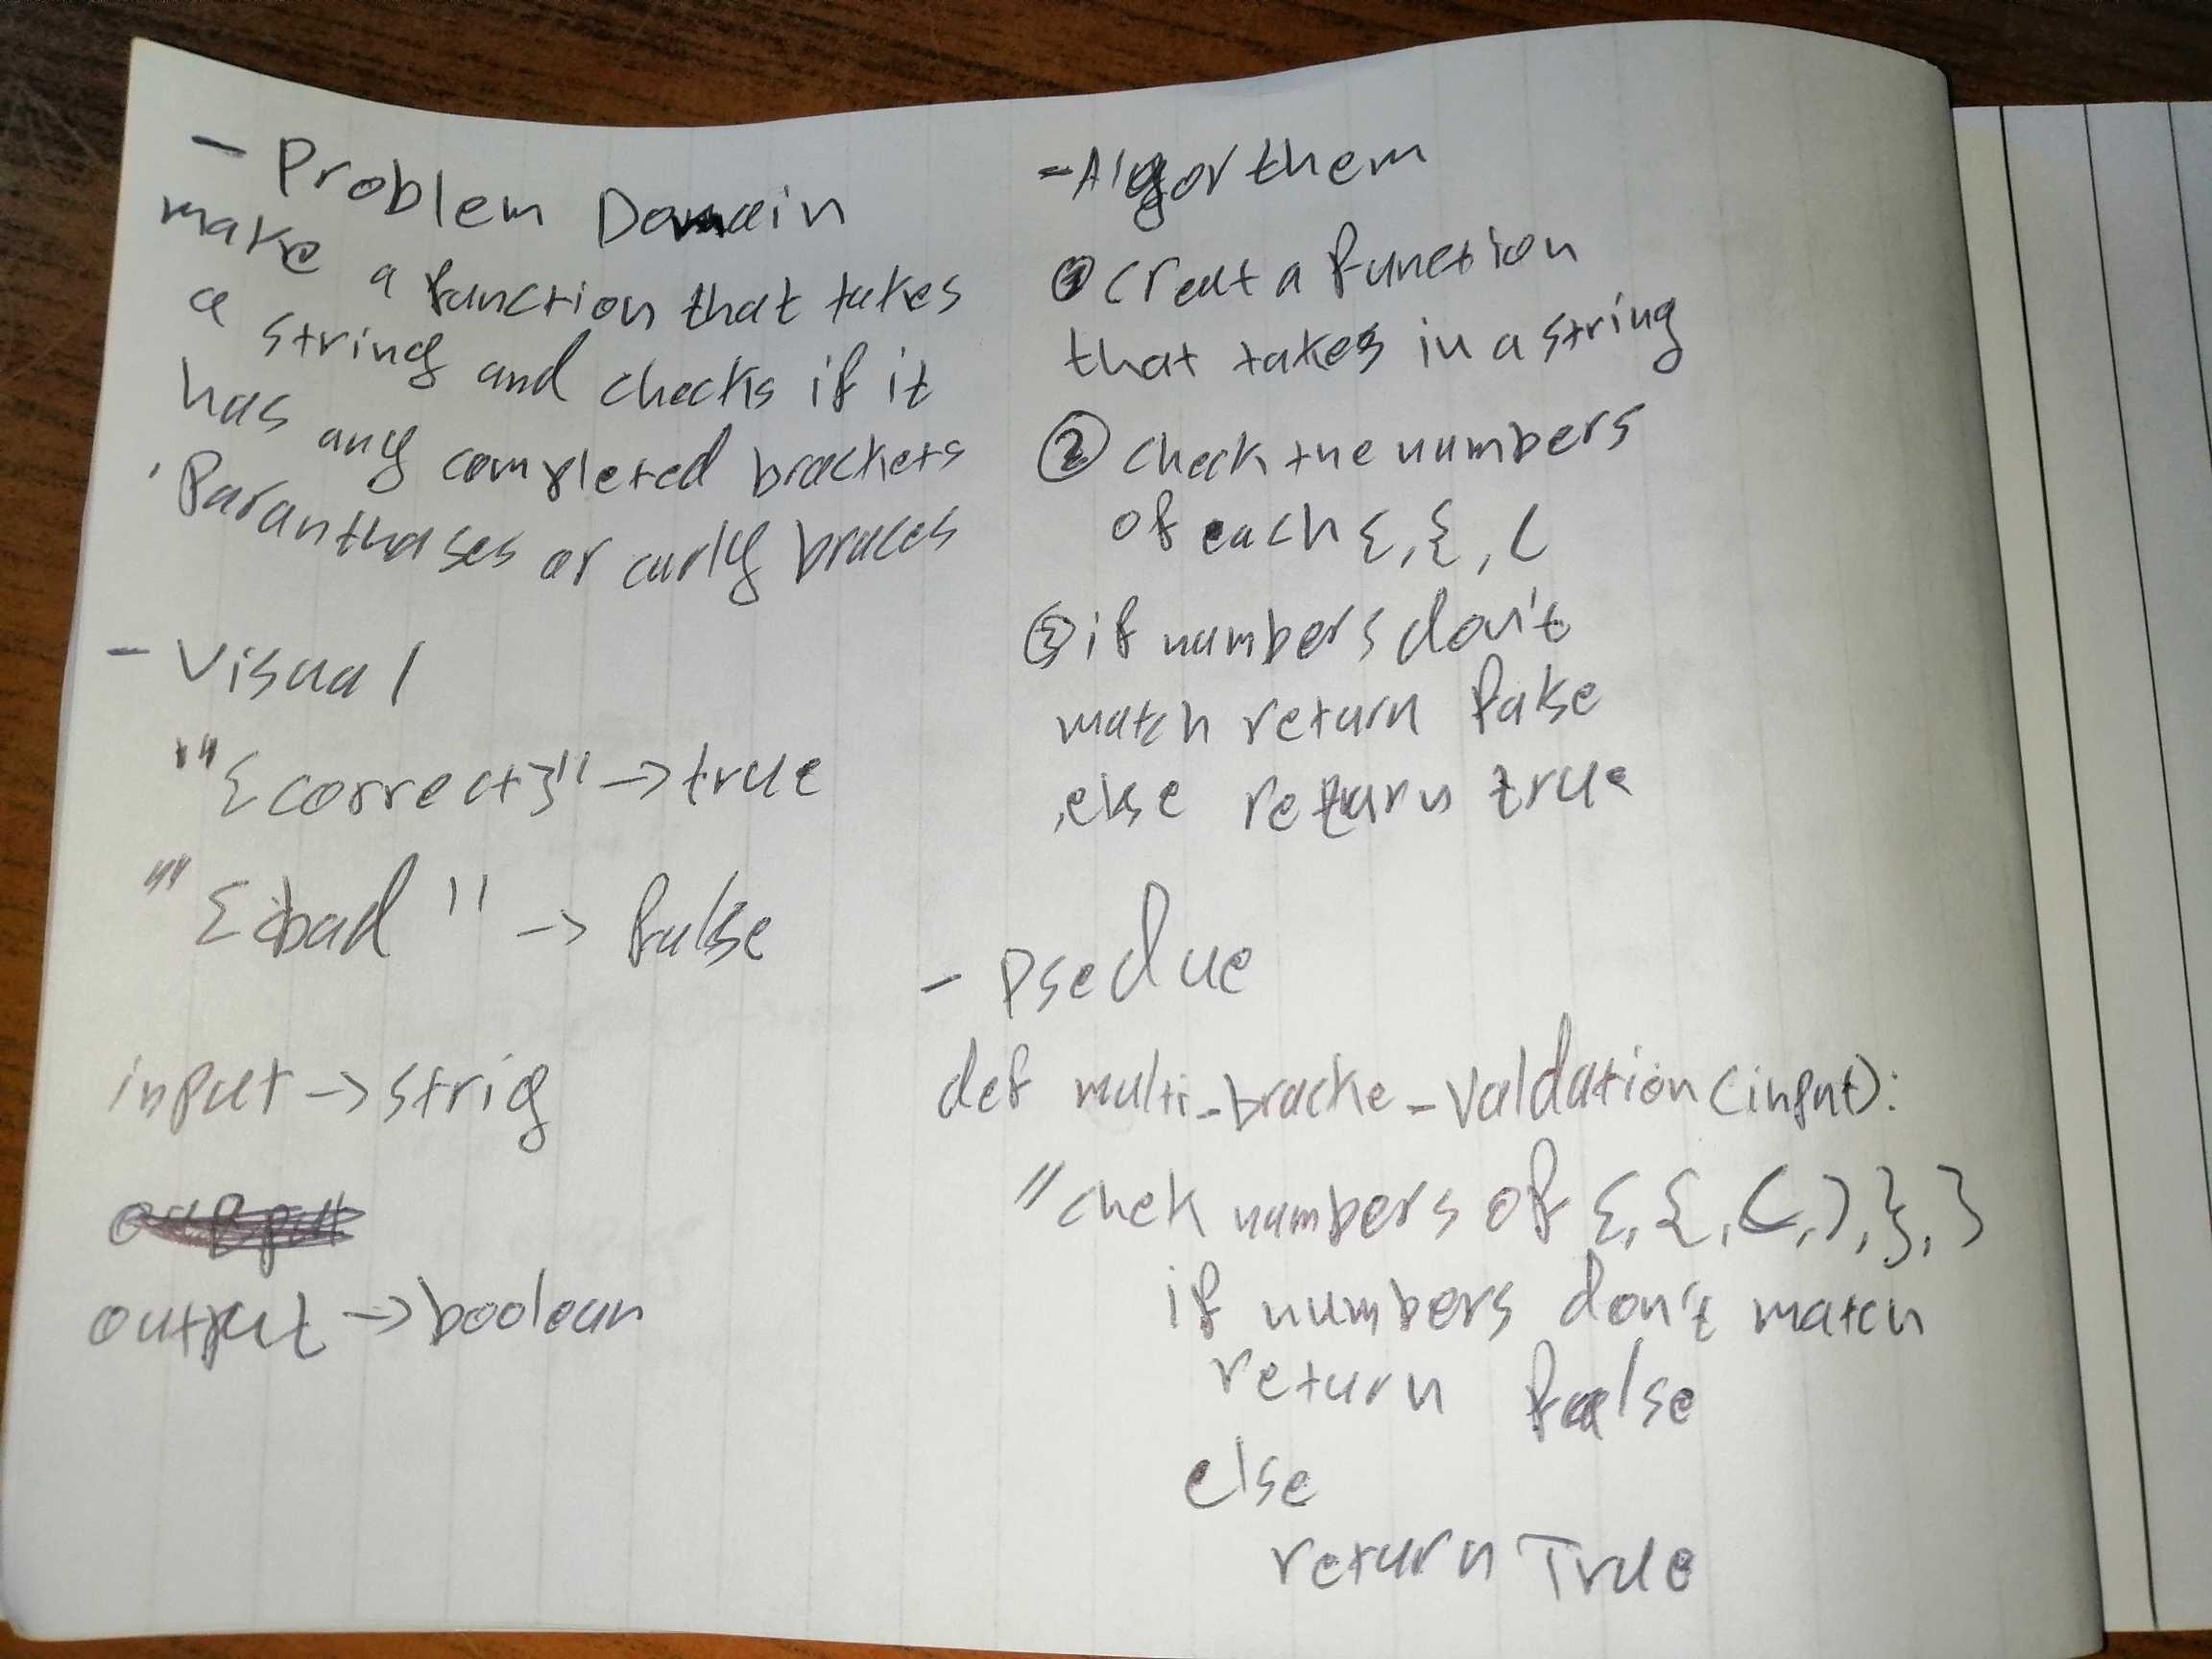 - Problem Domain
make a function that takes
a string and checks if it
has any completed brackets
, Paranthases or curly braces
- Visual
"" {correct}" -> true
"" {bad " -> false
input -> strig
output -> boolean
- Algorthem
① Creat a function
that takes in a string
② check the numbers
of each {, {, (
③ if numbers don't
match return false
, else return true
- Psedue
def multi_bracke_valdation(input):
// chek numbers of {, {, (, ), }, }
if numbers don't match
return false
else
return True